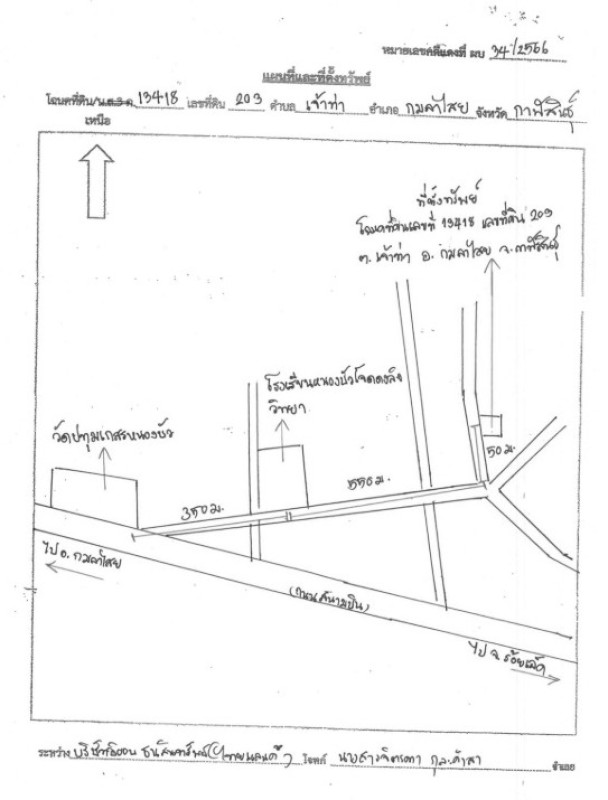 หมายเลขคดีแดงที่ ผบ 34/2566
แผนที่และที่ตั้งทรัพย์
โฉนดที่ดิน/น.ส.3 ก. 13418 เลขที่ดิน 203 ตำบล เจ้าท่า อำเภอ กมลาไสย จังหวัด กาฬสินธุ์
เหนือ
ที่ตั้งทรัพย์
โฉนดที่ดินเลขที่ 13418 เลขที่ดิน 203
ต.เจ้าท่า อ.กมลาไสย จ.กาฬสินธุ์
โรงเรียนหนองบัวโจดดงลิง
วิทยา
วัดปทุมเกสรหนองบัว
50 ม.
550 ม.
350 ม.
ไป อ.กมลาไสย
(ถนนสนามบิน)
ไป จ.ร้อยเอ็ด
ระหว่าง บริษัท ธนสินทรัพย์ โจทก์ นางสาว จำเลย